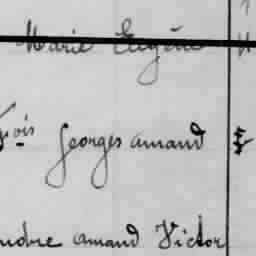 Marie Eugène
fois Georges amand
amand Victor